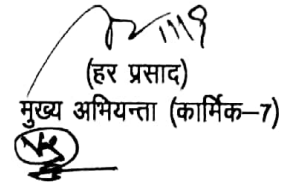 (हर प्रसाद)
मुख्य अभियन्ता (कार्मिक–7)